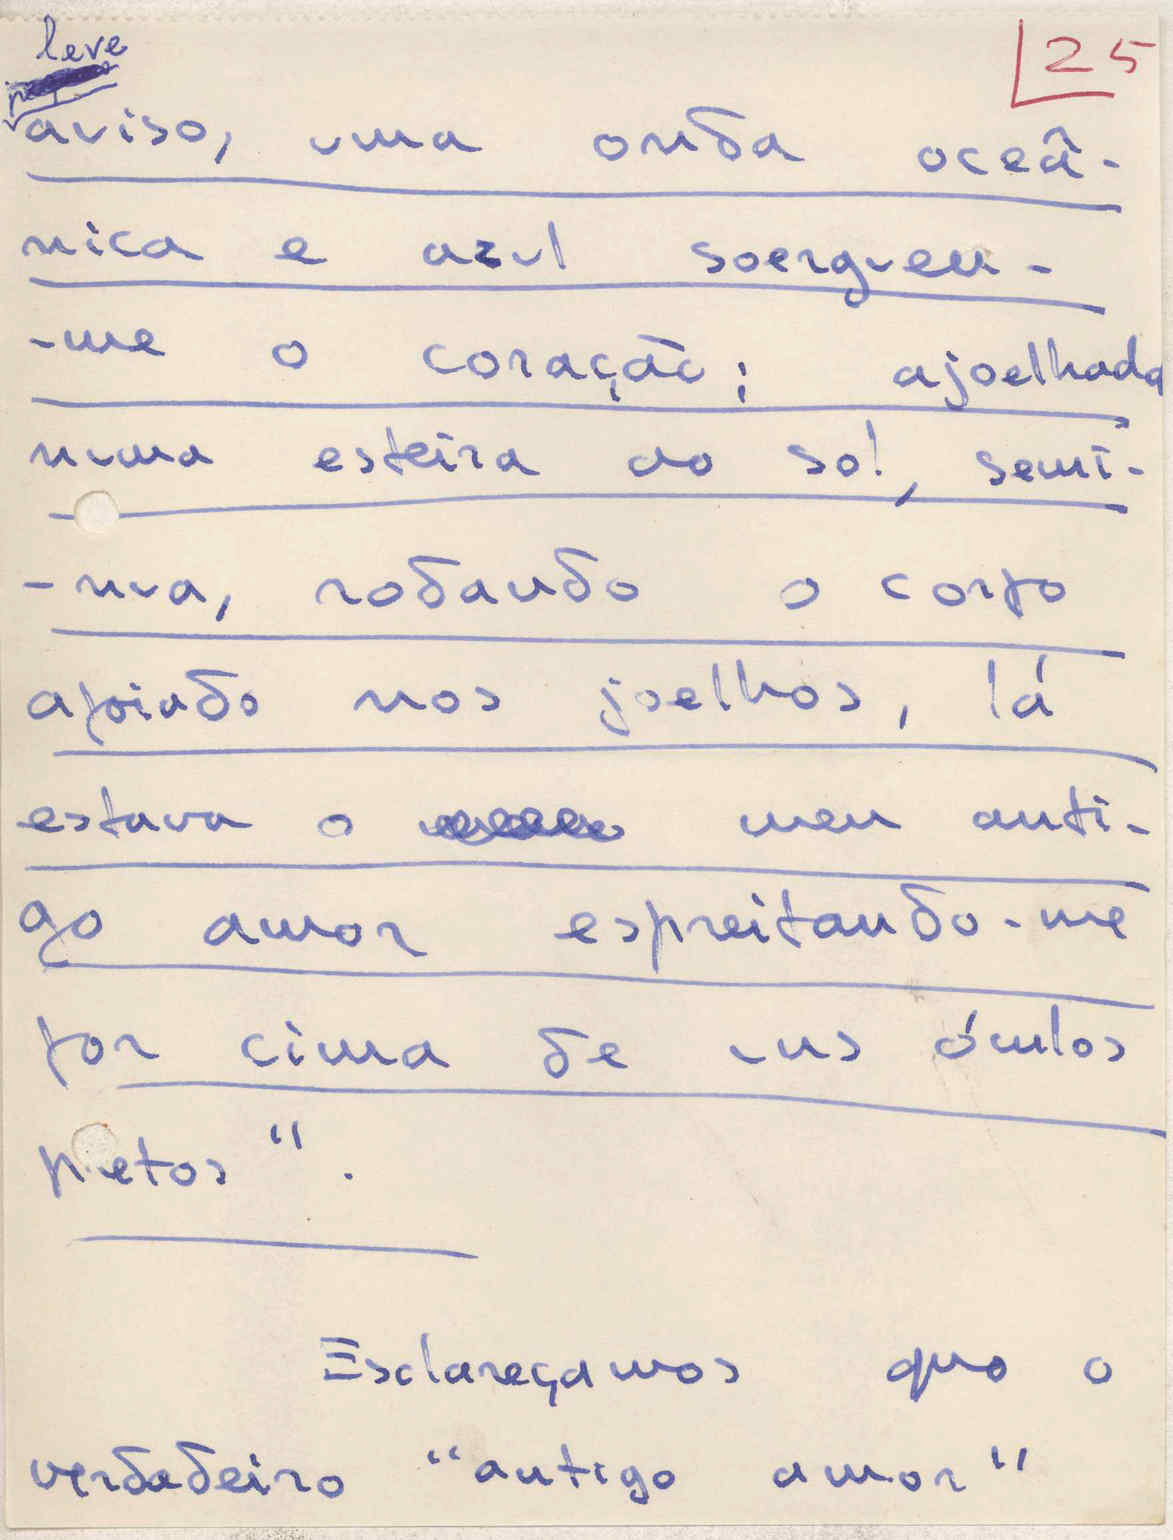 leve
25
aviso, uma onda oceâ-
nica e azul soergueu-
-me o coração; ajoelhada
numa esteira ao sol, semi-
-nua, rodando o corpo
apoiado nos joelhos, lá
estava o meu anti-
go amor espreitando-me
por cima de uns óculos
pretos".
Esclareçamos que o
verdadeiro "antigo amor"